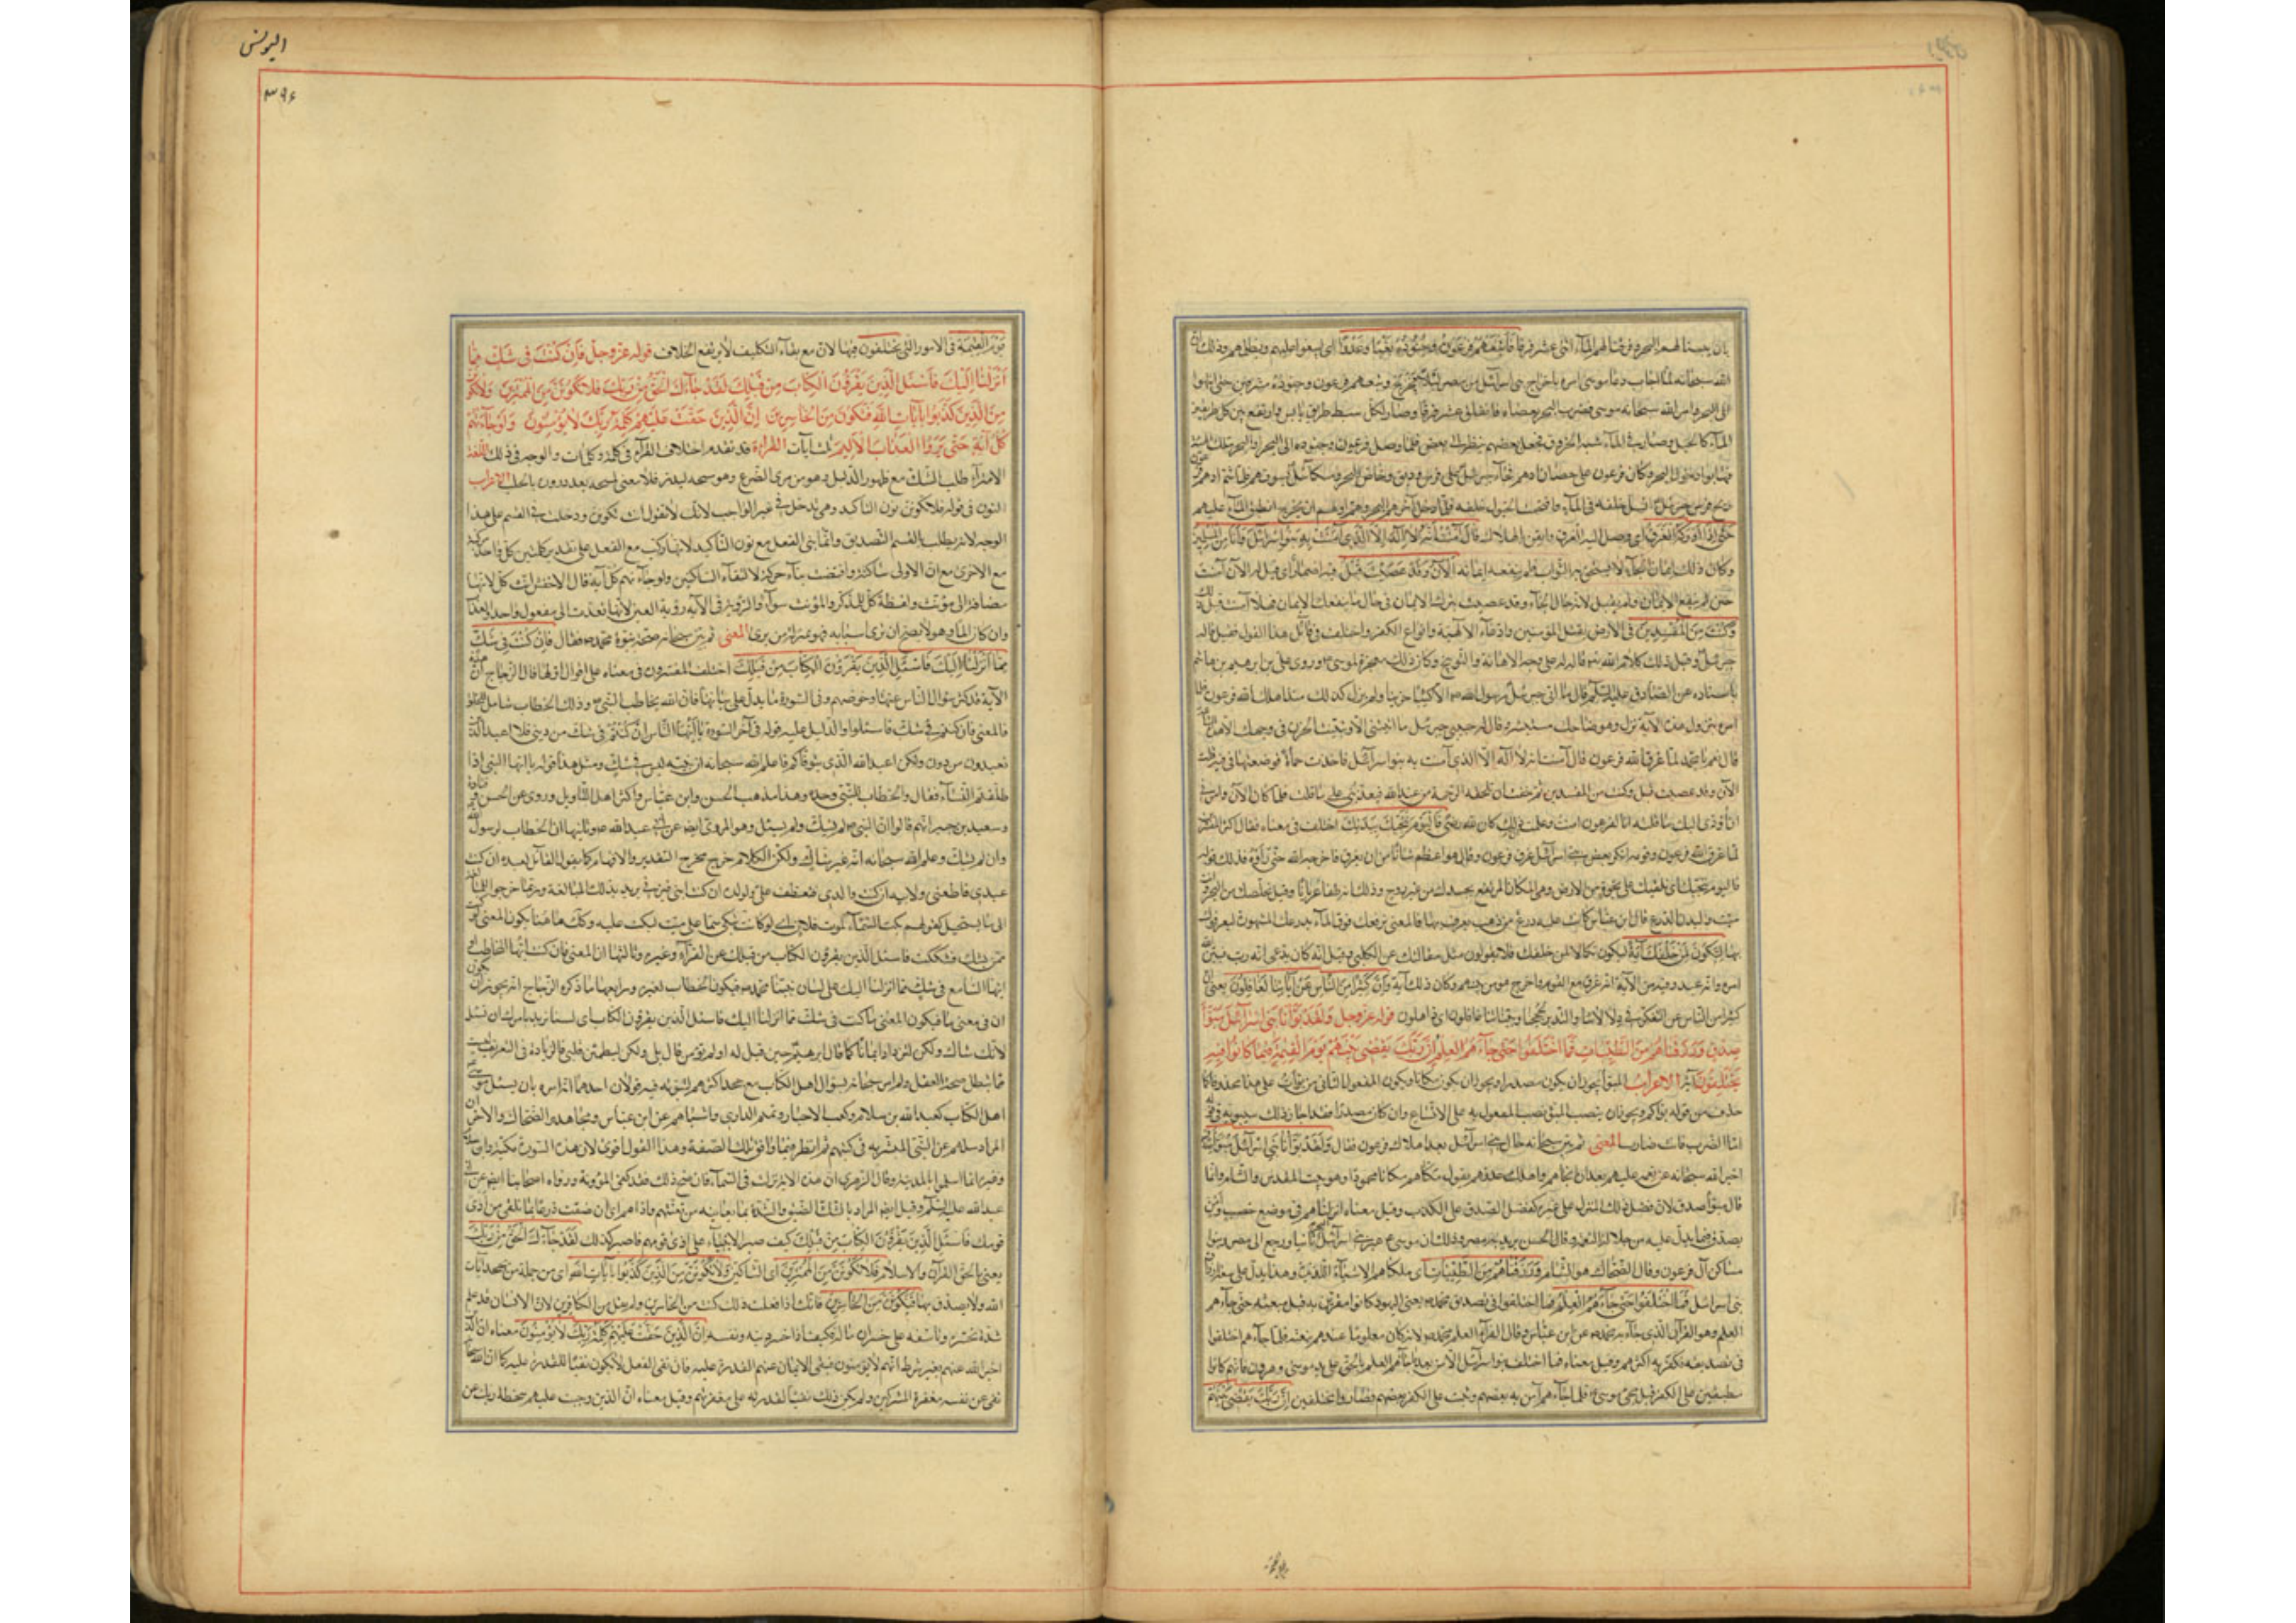 بان يبسنا لهم البحر وفرقنا لهم الماء اثنى عشر فرقا فأتبعهم فرعون وجنوده بغيا وعدوا اى ليبغوا عليهم ويظلموهم وذلك ان
الله سبحانه لما اجاب دعاء موسى امره باخراج بنى اسرائيل من مصر ليلا فخرج وتبعهم فرعون وجنوده مشرقين حتى انتهوا
الى البحر وامر الله سبحانه موسى فضرب البحر بعصاه فانفلق اثنى عشر فرقا وصار لكل سبط طريق يابس فارتفع بين كل طريقين
الماء كالجبل وصار فى الماء شبه الخروق فجعل بعضهم ينظر الى بعض فلما وصل فرعون وجنوده الى البحر
فهابوا دخول البحر وكان فرعون على حصان ادهم فجاء جبرئيل على فرس وديق وخاض البحر وميكائيل يسوقهم فلما شم ادهم فرعون
ريح فرس جبرئيل انسل خلفه فى الماء واقتحمت الخيول خلفه فلما دخل آخرهم البحر وهم اولهم ان يخرج انطبق الماء عليهم
حتى اذا ادركه الغرق اى وصل اليه الغرق وايقن بالهلاك قال آمنت انه لا اله الا الذى آمنت به بنو اسرائيل وانا من المسلمين
وكان ذلك ايمان الجاء لا يستحق به الثواب فلم ينفعه ايمانه الآن وقد عصيت قبل فيه اضمار اى قيل له الآن آمنت
حين لم ينفع الايمان ولم يقبل لانه حال الالجاء وقد عصيت بترك الايمان فى حال ما ينفعك الايمان فهلا آمنت قبل ذلك
وكنت من المفسدين فى الارض بقتل المؤمنين وادعاء الالهية وانواع الكفر واختلف فى قائل هذا القول فقيل قاله
جبرئيل وقيل ذلك كلام الله تعالى قاله له على وجه الاهانة والتوبيخ وكان ذلك معجزة لموسى وروى على بن ابرهيم بن هاشم
باسناده عن الصادق عليه السلم قال ما اتى جبرئيل رسول الله الا كئيبا حزينا ولم يزل كذلك منذ اهلك الله فرعون فلما
امره بنزول هذه الآية نزل وهو ضاحك مستبشر فقال له حبيبى جبرئيل ما اتيتنى الا وتبينت الحزن فى وجهك الا الساعة
قال نعم يا محمد لما غرق الله فرعون قال آمنت انه لا اله الا الذى آمنت به بنو اسرائيل فاخذت حمأة فوضعتها فى فيه وقلت
الآن وقد عصيت قبل وكنت من المفسدين ثم خفت ان تلحقه الرحمة من عند الله فيعذبنى على ما فعلت فلما كان الآن وامرنى
ان اؤدى اليك ما قلته انا لفرعون امنت وعلمت ان ذلك كان لله رضى فاليوم ننجيك ببدنك اختلف فى معناه فقال اكثر المفسرين
لما غرق الله فرعون وقومه انكر بعض بنى اسرائيل غرق فرعون وقال هو اعظم شأنا من ان يغرق فاخرجه الله حتى رأوه فذلك قوله
فاليوم ننجيك اى نلقيك على نجوة من الارض وهى المكان المرتفع بجسدك من غير روح وذلك انه طفا عريانا وقيل نخلصك من البحر وانت
ميت والبدن الدرع قال ابن عباس كانت عليه درع من ذهب يعرف بها فالمعنى نرفعك فوق الماء بدرعك المشهورة ليعرفوك
بها لتكون لمن خلفك آية ليكون نكالا لمن خلفك فلا يقولون مثل مقالتك عن الكلبى وقيل انه كان يدعى انه رب فبين الله
امره وانه عبد وفيه من الآية انه غرق مع القوم واخرج هو من بينهم وكان ذلك آية وان كثيرا من الناس عن آياتنا لغافلون يعنى ان
كثيرا من الناس عن التفكر فى دلالاتنا والتدبر لحججنا وبيناتنا غافلون اى ذاهلون قوله عز وجل ولقد بوأنا بنى اسرائيل مبوأ
صدق ورزقناهم من الطيبات فما اختلفوا حتى جاءهم العلم ان ربك يقضى بينهم يوم القيمة فيما كانوا فيه
يختلفون آية الاعراب المبوأ يجوز ان يكون مصدرا ويجوز ان يكون مكانا ويكون المفعول الثانى من بوأت على هذا محذوفا كما
حذف من قوله بوأكم ويجوز ان ينتصب المبوأ نصب المفعول به على الاتساع وان كان مصدرا فقد اجاز ذلك سيبويه فى قوله
اما الضرب فانت ضارب المعنى ثم بين سبحانه حال بنى اسرائيل بعد اهلاك فرعون فقال ولقد بوأنا بنى اسرائيل مبوأ صدق
اخبر الله سبحانه عن نعمه عليهم بعد ان انجاهم واهلك عدوهم يقول مكناهم مكانا محمودا وهو بيت المقدس والشام وانما
قال مبوأ صدق لان فضل ذلك المنزل على غيره كفضل الصدق على الكذب وقيل معناه انزلناهم فى موضع خصب وامن
يصدق فيما يدل عليه من جلالة النعمة وقال الحسن يريد به مصر وذلك ان موسى عبر ببنى اسرائيل ثانيا ورجع الى مصر وتبوأ
مساكن آل فرعون وقال الضحاك هو الشام ومصر ورزقناهم من الطيبات اى ملكناهم الاشياء اللذيذة وهذا يدل على سعة ارزاق
بنى اسرائيل فما اختلفوا حتى جاءهم العلم فما اختلفوا فى تصديق محمد يعنى اليهود كانوا مقرين به قبل مبعثه حتى جاءهم
العلم وهو القرآن الذى جاء به محمد عن ابن عباس وقال الفراء العلم محمد لانه كان معلوما عندهم بنعته فلما جاءهم اختلفوا
فى تصديقه فكفر به اكثرهم وقيل معناه فما اختلف بنو اسرائيل الا من بعد ما جاءهم العلم بالحق على يد موسى وهرون فانهم كانوا
مطبقين على الكفر قبل مجئ موسى فلما جاءهم آمن به بعضهم وثبت على الكفر بعضهم فصاروا مختلفين ان ربك يقضى بينهم
اليونس
٣٩٦
يوم القيمة فى الامور التى يختلفون فيها لان مع بقاء التكليف لا يرتفع الخلاف قوله عز وجل فان كنت فى شك مما
انزلنا اليك فاسئل الذين يقرؤن الكتاب من قبلك لقد جاءك الحق من ربك فلا تكونن من الممترين ولا تكونن
من الذين كذبوا بآيات الله فتكون من الخاسرين ان الذين حقت عليهم كلمة ربك لا يؤمنون ولو جاءتهم
كل آية حتى يروا العذاب الاليم ثلث آيات القراءة قد تقدم اختلاف القراء فى كلمة وكلمات والوجه فى ذلك اللغة
الامتراء طلب الشك مع ظهور الدليل وهو من مرى الضرع وهو مسحه ليدر فلا معنى لمسحه بعد درور بالحلب الاعراب
النون فى قوله فلا تكونن نون التاكيد وهى تدخل فى غير الواجب لانك لا تقول انت تكونن ودخلت فى القسم على هذا
الوجه لانه يطلب بالقسم التصديق وانما بنى الفعل مع نون التاكيد لانها ركبت مع الفعل على تقدير كلمتين كل واحدة مركبة
مع الاخرى مع ان الاولى ساكنة واقتضت بناء حركة لالتقاء الساكنين ولو جاءتهم كل آية قال الاخفش انث كل لانها
مضافة الى مؤنث ولفظة كل للمذكر والمؤنث سواء والرؤية فى الآية رؤية العين لانها تعدت الى مفعول واحد والعذاب
وان كان الما وهو لا يصح ان يرى فترى اسبابه فهو بمنزلة من يرى المعنى ثم بين سبحانه صحة نبوة محمد فقال فان كنت فى شك
مما انزلنا اليك فاسئل الذين يقرؤن الكتاب من قبلك اختلف المفسرون فى معناه على اقوال اولها قال الزجاج ان هذه
الآية قد كثر سؤال الناس عنها وخوضهم وفى السورة ما يدل على بيانها فان الله يخاطب النبى وذلك الخطاب شامل للخلق
فالمعنى فان كنتم فى شك فاسئلوا والدليل عليه قوله فى آخر السورة يا ايها الناس ان كنتم فى شك من دينى فلا اعبد الذين
تعبدون من دون ولكن اعبد الله الذى يتوفاكم فاعلم الله سبحانه ان نبيه ليس فى شك ومثل هذا قوله يا ايها النبى اذا
طلقتم النساء فقال والخطاب للنبى وحده وهذا مذهب الحسن وابن عباس واكثر اهل التأويل وروى عن الحسن وقتادة
وسعيد بن جبير انهم قالوا ان النبى لم يشك ولم يسئل وهو المروى ايضا عن ابى عبد الله وثانيها ان الخطاب لرسول الله
وان لم يشك وعلم الله سبحانه انه غير شاك ولكن الكلام خرج مخرج التقرير والافهام كما يقول القائل لعبده ان كنت
عبدى فاطعنى ولابيه ان كنت والدى فتعطف على ولولده ان كنت ابنى فبرنى يريد بذلك المبالغة وربما خرجوا فى المبالغة
الى ما يستحيل كقولهم بكت السماء لموت فلان اى لو كانت تبكى سماء على ميت لبكت عليه وكذلك هاهنا يكون المعنى لو كنت
ممن يشك فشككت فاسئل الذين يقرؤن الكتاب من قبلك عن الفراء وغيره وثالثها ان المعنى فان كنت ايها المخاطب او
ايها السامع فى شك مما انزلنا اليك على لسان نبينا محمد فيكون الخطاب لغيره ورابعها ما ذكره الزجاج انه يجوز ان يكون
ان فى معنى ما فيكون المعنى ما كنت فى شك مما انزلنا اليك فاسئل الذين يقرؤن الكتاب اى لسنا نريد بامرك ان تسئل
لانك شاك ولكن لتزداد ايمانا كما قال ابرهيم حين قيل له اولم تؤمن قال بلى ولكن ليطمئن قلبى فالزيادة فى التعريف ليست
مما يبطل صحة العقد وانما امر سبحانه بسؤال اهل الكتاب مع جحد اكثرهم لنبوته فيه قولان احدهما انه امره بان يسئل مؤمنى
اهل الكتاب كعبد الله بن سلام وكعب الاحبار وتميم الدارى واشباههم عن ابن عباس ومجاهد والضحاك والاخر ان
المراد سلهم عن النبى المبشر به فى كتبهم ثم انظر فيما وافق تلك الصفة وهذا القول اقوى لان هذه السورة مكية وابن سلام
وغيره انما اسلموا بالمدينة وقال الزهرى ان هذه الآية نزلت فى السماء فان صح ذلك فقد كفى المؤونة ورواه اصحابنا ايضا عن ابى
عبد الله عليه السلم وقيل ايضا المراد بالشك الضيق والشدة بما يعاينه من تعنتهم واذاهم اى ان ضقت ذرعا بما تلقى من اذى
قومك فاسئل الذين يقرؤن الكتاب من قبلك كيف صبر الانبياء على اذى قومهم فاصبر كذلك لقد جاءك الحق من ربك
يعنى بالحق القرآن والاسلام فلا تكونن من الممترين اى الشاكين ولا تكونن من الذين كذبوا بآيات الله اى من جملة من يجحد آيات
الله ولا يصدق بها فتكون من الخاسرين فانك اذا فعلت ذلك كنت من الخاسرين ولم يقل من الكافرين لان الانسان قد علم
شدة تحسره وتأسفه على خسران ماله فكيف اذا خسر دينه ونفسه ان الذين حقت عليهم كلمة ربك لا يؤمنون معناه ان الذين
اخبر الله عنهم بغير شرط انهم لا يؤمنون فنفى الايمان عنهم القدرة عليه فان نفى الفعل لا يكون نفيا للقدرة عليه كما ان الله سبحانه
نفى عن نفسه مغفرة المشركين ولم يكن ذلك نفيا لقدرته على مغفرتهم وقيل معناه ان الذين وجب عليهم سخط ربك عن